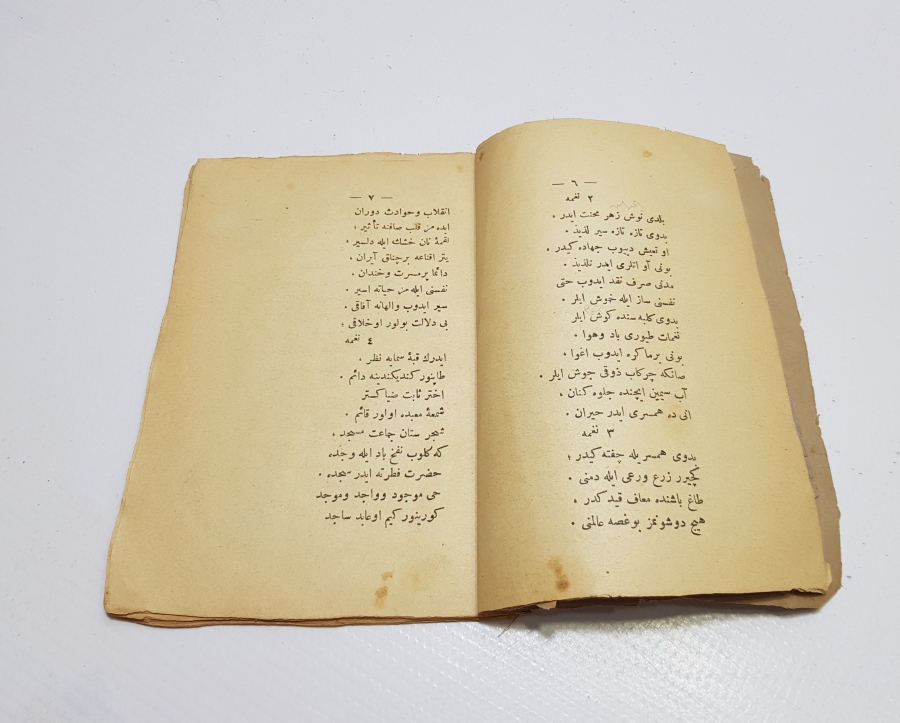 — ٦ —
٢ نغمه
بلدی نوش زهر محنت ایدر .
بدوی تازه تازه سیر لذیذ .
او تعیش دییوب جهاده کیدر .
بونی آو اتلری ایدر تلذیذ .
مدنی صرف نقد ایدوب حتی
نفسنی ساز ایله خموش ایلر .
بدوی کلبه سنده کوش ایلر
نغمات طیوری باد وهوا .
بونی برما کره ایدوب اغوا ،
صانکه چرکاب ذوقی جوش ایلر .
آب سیمین ایچنده جلوه کنان .
انی ده همسری ایدر حیران .
٣ نغمه
بدوی همسریله چفته کیدر ؛
کچیرر زرع ورعی ایله دمنی .
طاغ باشنده معاف قید کدر ،
هیچ دوشونمز بو غصه عالمنی .
— ٧ —
انقلاب وحوادث دوران
ایده مز قلب صافنه تأثیر ؛
لقمۀ نان خشك ایله دلسیر ،
یتر اقناعه برچناق آیران .
دائما پرمسرت وخندان .
نفسنی ایله مز حیاته اسیر .
سیر ایدوب والهانه آفاقی .
بی دلالت بولور اوخلاقی ؛
٤ نغمه
ایدرك قبۀ سمایه نظر ،
طاپنور کندیکندینه دائم .
اختر ثابت ضیا کستر
شمعۀ معبده اولور قائم .
شجر ستان جماعت مسجد ،
که کلوب نفخ باد ایله وجده
حضرت فطرته ایدر سجده .
حی موجود وواجد وموجد
کورینور کیم اوعابد ساجد